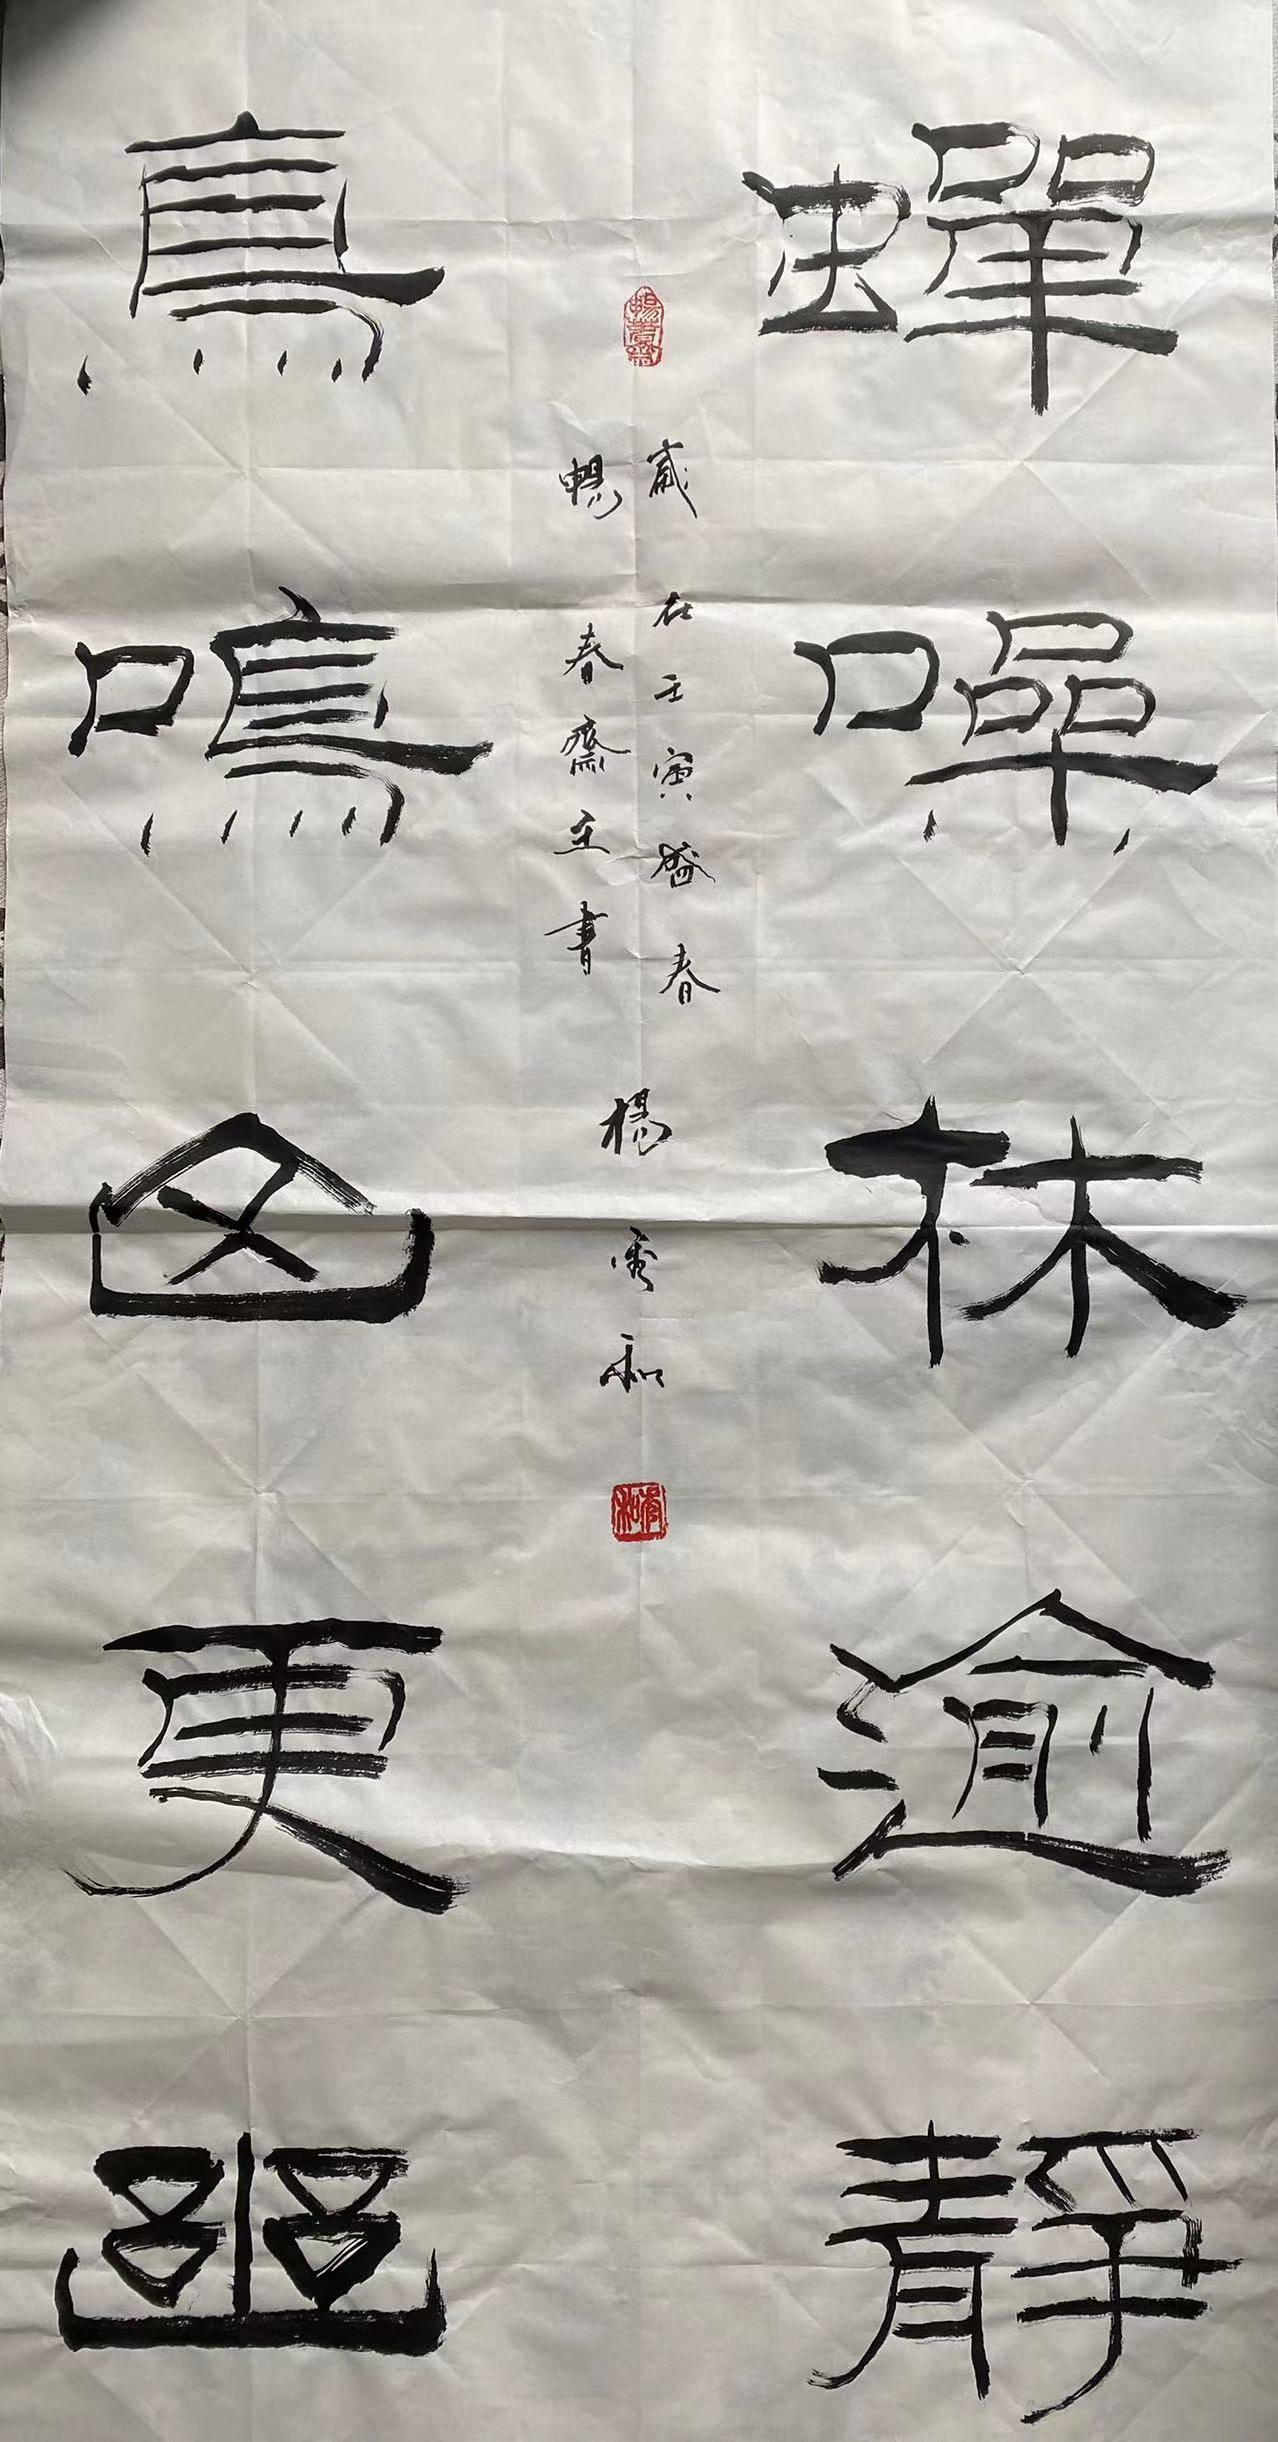 蟬噪林逾靜
鳥鳴山更幽
歲在壬寅盛春
暢春齋主書
楊秀和
暢春齋